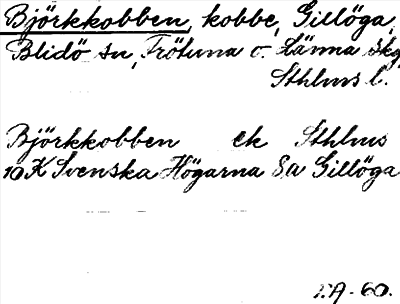 Björkkobben, kobbe, Gillöga,
Blidö sn, Frötuna o. Länna skg
Sthlms l.
Björkkobben ek Sthlms
10 K Svenska Högarna Sa Gillöga
-60.